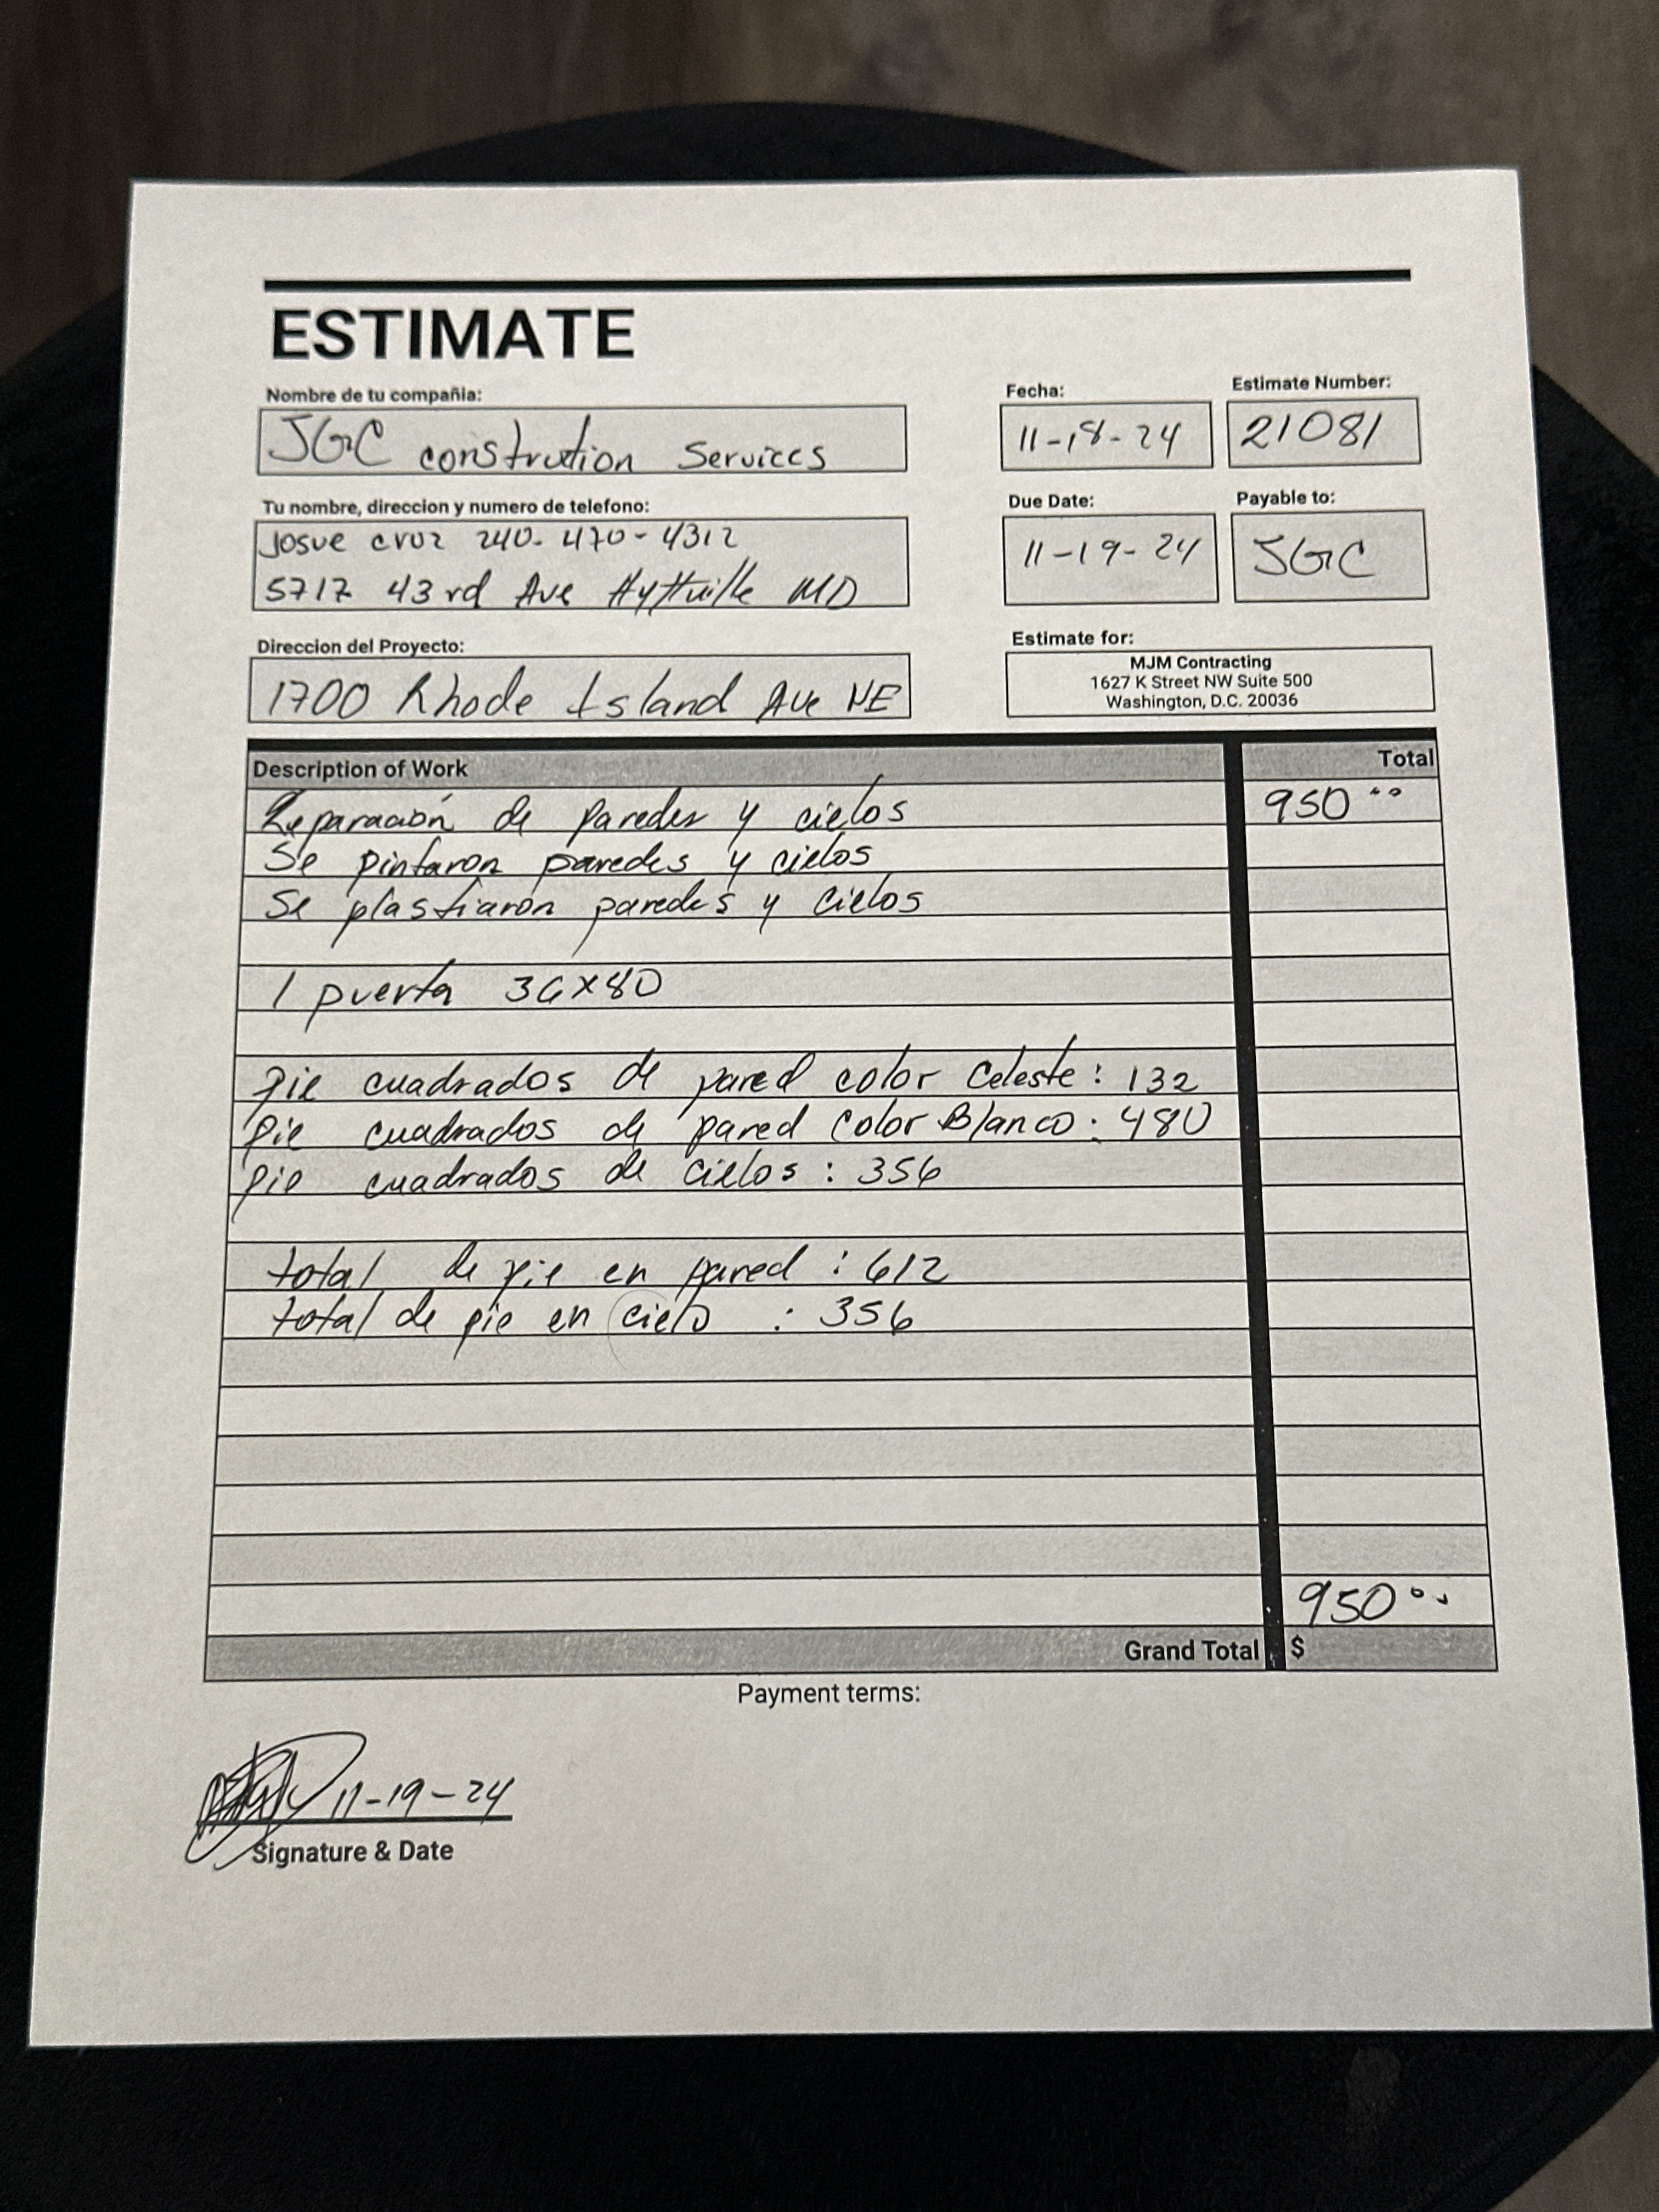 ESTIMATE
Nombre de tu compañia:
JGC constrution Services
Fecha:
11-18-24
Estimate Number:
21081
Tu nombre, direccion y numero de telefono:
Josue cruz 240-470-4312
5717 43rd Ave Hyttville MD
Due Date:
11-19-24
Payable to:
JGC
Direccion del Proyecto:
1700 Rhode Island Ave NE
Estimate for:
MJM Contracting
1627 K Street NW Suite 500
Washington, D.C. 20036
Description of Work Total
Reparación de paredes y cielos 950 00
Se pintaron paredes y cielos
Se plastiaron paredes y cielos
1 puerta 36x80
pie cuadrados de pared color Celeste: 132
Pie cuadrados de pared Color Blanco: 480
pie cuadrados de cielos: 356
total de pie en pared: 612
total de pie en cielo : 356
950 00
Grand Total $
Payment terms:
11-19-24
Signature & Date